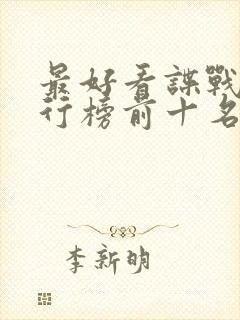 最好看諜戰
行榜前十名
李新明